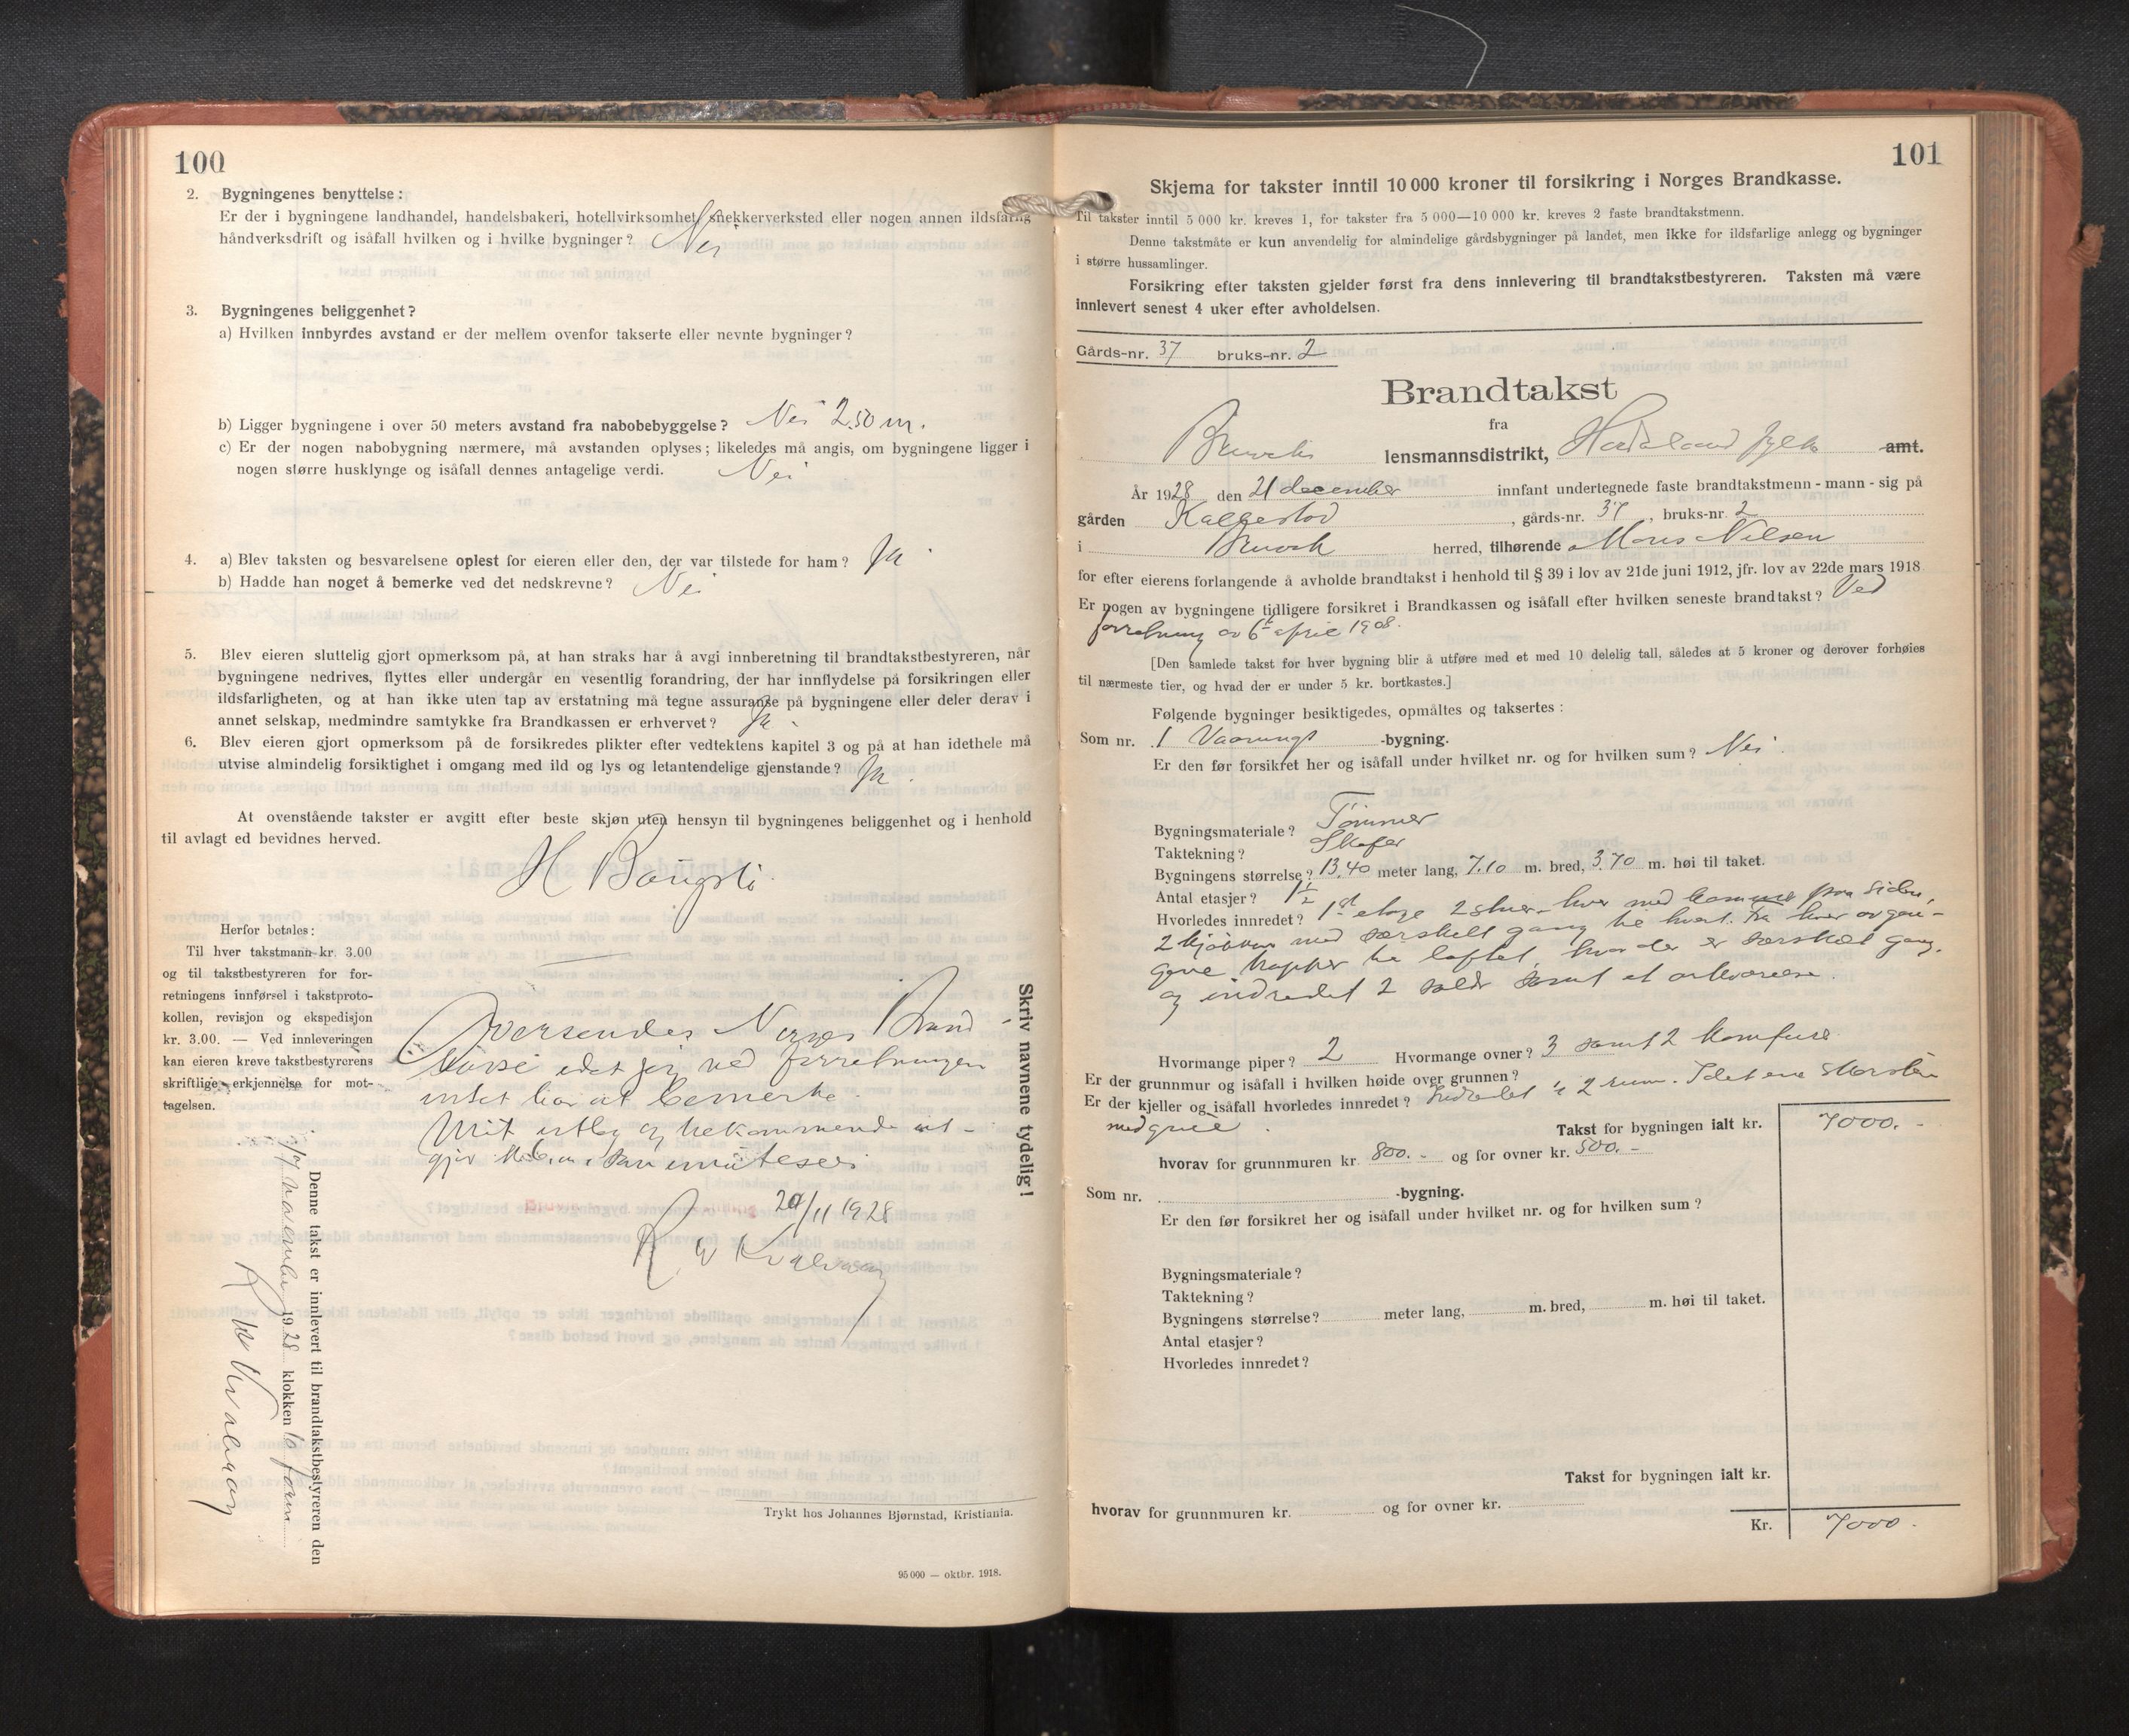 100
2. Bygningenes benyttelse:
Er der i bygningene landhandel, handelsbakeri, hotellvirksomhet, snekkerverksted eller nogen annen ildsfarlig
håndverksdrift og isåfall hvilken og i hvilke bygninger? Nei
3. Bygningenes beliggenhet?
a) Hvilken innbyrdes avstand er der mellem ovenfor takserte eller nevnte bygninger?
b) Ligger bygningene i over 50 meters avstand fra nabobebyggelse? Nei 2.50 m.
c) Er der nogen nabobygning nærmere, må avstanden oplyses; likeledes må angis, om bygningene ligger i
nogen større husklynge og isåfall dennes antagelige verdi. Nei
4. a) Blev taksten og besvarelsene oplest for eieren eller den, der var tilstede for ham? Ja
b) Hadde han noget å bemerke ved det nedskrevne? Nei
5. Blev eieren sluttelig gjort opmerksom på, at han straks har å avgi innberetning til brandtakstbestyreren, når
bygningene nedrives, flyttes eller undergår en vesentlig forandring, der har innflydelse på forsikringen eller
ildsfarligheten, og at han ikke uten tap av erstatning må tegne assuranse på bygningene eller deler derav i
annet selskap, medmindre samtykke fra Brandkassen er erhvervet? Ja
6. Blev eieren gjort opmerksom på de forsikredes plikter efter vedtektens kapitel 3 og på at han idethele må
utvise almindelig forsiktighet i omgang med ild og lys og letantendelige gjenstande? Ja.
At ovenstående takster er avgitt efter beste skjøn uten hensyn til bygningenes beliggenhet og i henhold
til avlagt ed bevidnes herved.
Herfor betales:
Til hver takstmann kr. 3.00
og til takstbestyreren for for-
retningens innførsel i takstproto-
kollen, revisjon og ekspedisjon
kr. 3.00. — Ved innleveringen
kan eieren kreve takstbestyrerens
skriftlige erkjennelse for mot-
tagelsen.
Oversendes Norges Brand-
kasse idet jeg ved forretningen
intet har at bemerke.
Mit utlæg og tilkommende ut-
gjør
20/11 1928
R W Kvalvaag
Skriv navnene tydelig!
Denne takst er innlevert til brandtakstbestyreren den
17 november 1928 klokken 10 form
R W Kvalvaag
Trykt hos Johannes Bjørnstad, Kristiania.
95 000 — oktbr. 1918.
101
Skjema for takster inntil 10 000 kroner til forsikring i Norges Brandkasse.
Til takster inntil 5 000 kr. kreves 1, for takster fra 5 000—10 000 kr. kreves 2 faste brandtakstmenn.
Denne takstmåte er kun anvendelig for almindelige gårdsbygninger på landet, men ikke for ildsfarlige anlegg og bygninger
i større hussamlinger.
Forsikring efter taksten gjelder først fra dens innlevering til brandtakstbestyreren. Taksten må være
innlevert senest 4 uker efter avholdelsen.
Gårds-nr. 37 bruks-nr. 2
Brandtakst
fra
Bruvik lensmannsdistrikt, Hordaland fylke amt.
År 1928 den 21 december innfant undertegnede faste brandtakstmenn - mann - sig på
gården Kallestad, gårds-nr. 37, bruks-nr. 2
i Bruvik herred, tilhørende Mons Nilsen
for efter eierens forlangende å avholde brandtakst i henhold til § 39 i lov av 21de juni 1912, jfr. lov av 22de mars 1918
Er nogen av bygningene tidligere forsikret i Brandkassen og isåfall efter hvilken seneste brandtakst? Ved
forretning av 6te april 1908.
[Den samlede takst for hver bygning blir å utføre med et med 10 delelig tall, således at 5 kroner og derover forhøies
til nærmeste tier, og hvad der er under 5 kr. bortkastes.]
Følgende bygninger besiktigedes, opmåltes og taksertes:
Som nr. 1 Vaanings -bygning.
Er den før forsikret her og isåfall under hvilket nr. og for hvilken sum? Nei.
Bygningsmateriale? Tømmer
Taktekning? Skifer
Bygningens størrelse? 13,40 meter lang, 7.10 m. bred, 3.70 m. høi til taket.
Antal etasjer? 1 1/2
Hvorledes innredet? 1st etage 2 stuer hver med kammers paa siden,
2 kjøkken med særskilt gang til hvert. Fra hver av gan-
gene trapper til loftet, hvor der er særskilt gang.
og indredet 2 saler samt et arkværelse.
Hvormange piper? 2 Hvormange ovner? 3 samt 2 komfure
Er der grunnmur og isåfall i hvilken høide over grunnen?
Er der kjeller og isåfall hvorledes innredet? Indredet i 2 rum. I det ene skorsten
med grue.
Takst for bygningen ialt kr. 7000.-
hvorav for grunnmuren kr. 800.- og for ovner kr. 500.-
Som nr. -bygning.
Er den før forsikret her og isåfall under hvilket nr. og for hvilken sum?
Bygningsmateriale?
Taktekning?
Bygningens størrelse? meter lang, m. bred, m. høi til taket.
Antal etasjer?
Hvorledes innredet?
Takst for bygningen ialt kr.
hvorav for grunnmuren kr. og for ovner kr.
Kr. 7000.-